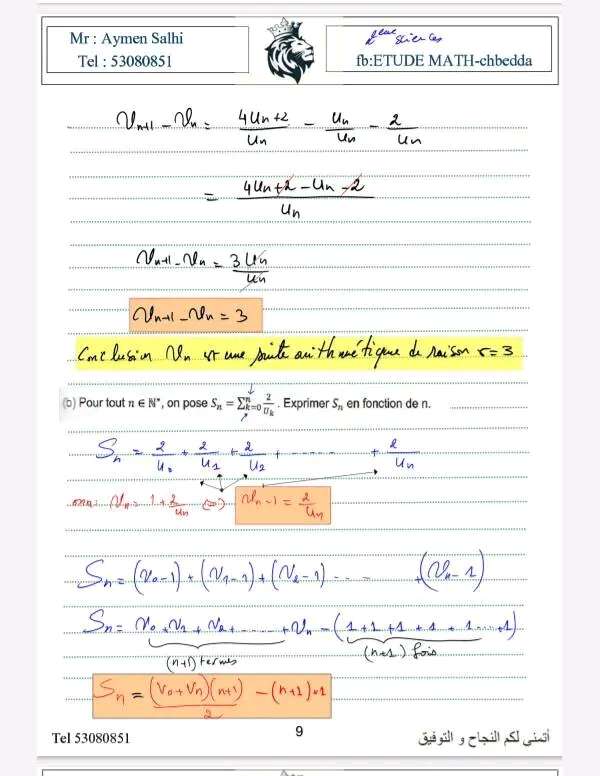 Mr : Aymen Salhi
Tel : 53080851
2ème Sciences
fb:ETUDE MATH-chbedda
Vn+1 - Vn = (4Un+2)/Un - Un/Un - 2/Un
= (4Un+2-Un-2)/Un
Vn+1 - Vn = 3Un/Un
Vn+1 - Vn = 3
Conclusion Vn est une suite arithmétique de raison r=3
(b) Pour tout n ∈ ℕ*, on pose Sₙ = ∑ⁿₖ₌₀ 2/Uₖ . Exprimer Sₙ en fonction de n.
Sn = 2/U0 + 2/U1 + 2/U2 + ...... + 2/Un
ona: Vn = 1 + 2/Un (=) Vn - 1 = 2/Un
Sn = (V0-1) + (V1-1) + (V2-1) ... ... +(Vn-1)
Sn = V0 + V1 + V2 + ...... + Vn - (1+1+1+1+1...+1)
(n+1) termes (n+1) fois
Sn = (V0+Vn)(n+1)/2 - (n+1)×1
Tel 53080851
9
أتمنى لكم النجاح و التوفيق